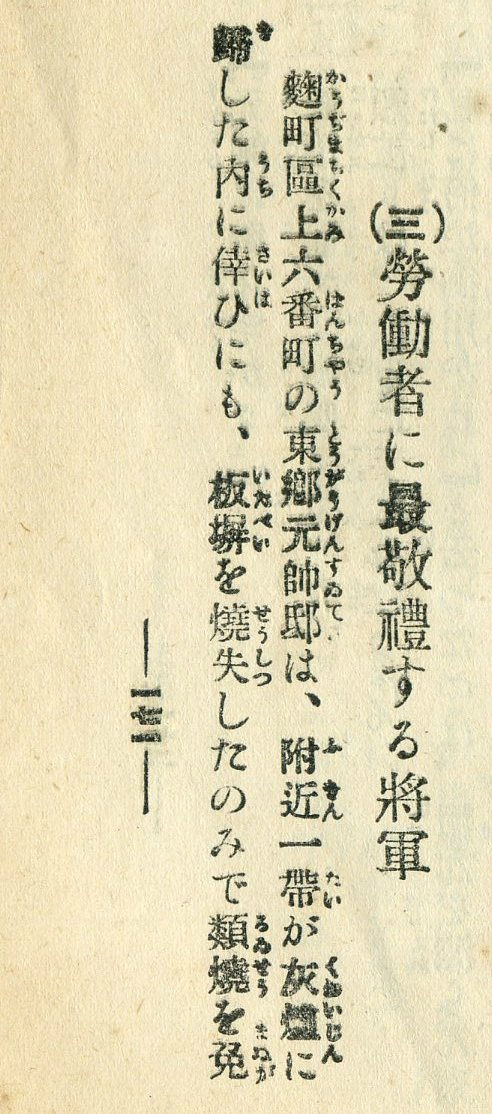 (三)勞働者に最敬禮する將軍
麴町區上六番町の東鄕元帥邸は、附近一帶が灰燼に
歸した内に倖ひにも、板塀を燒失したのみで類燒を免
― 一七三 ―